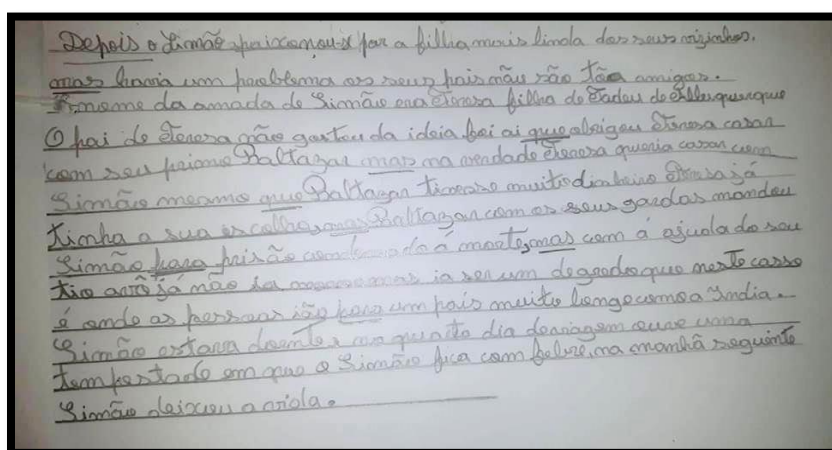 Depois o Simão apaixonou-se por a filha mais linda dos seus vizinhos.
mas havia um problema os seus pais não são tão amigos.
nome da amada de Simão era Teresa filha de Tadeu de Albuquerque
O pai de Teresa não gostou da ideia foi ai que obrigou Teresa casar
com seu primo Baltazar mas na verdade Teresa queria casar com
Simão mesmo que Baltazar tivesse muito dinheiro Teresa já
tinha a sua escolha, mas Baltazar com os seus gardas mandou
Simão para prisão condenado á morte, mas com á ajuda do seu
tio já não ia mas ia ser um degredo que neste casso
é onde as pessoas ião para um pais muito longe como a India.
Simão estava doente, no quinto dia de viagem ouve uma
tempestade em que o Simão fica com febre, na manhã seguinte
Simão deixou a